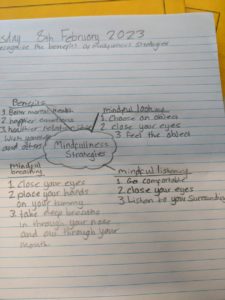 sday 8th February 2023
recognise the benefits of mindfulness strategies
Benefits
1. Better mental health
2. happier emotions
3. healthier relationships
with yourself
and others
Mindfullness
Strategies
mindful looking
1. Choose an object
2. close your eyes
3. feel the object
mindful
breathing
1. close your eyes
2. place your hands
on your tummy
3. take deep breaths
in through your nose
and out through your
mouth.
mindful listening
1. Get comfortable
2. close your eyes
3. Listen to your surroundings